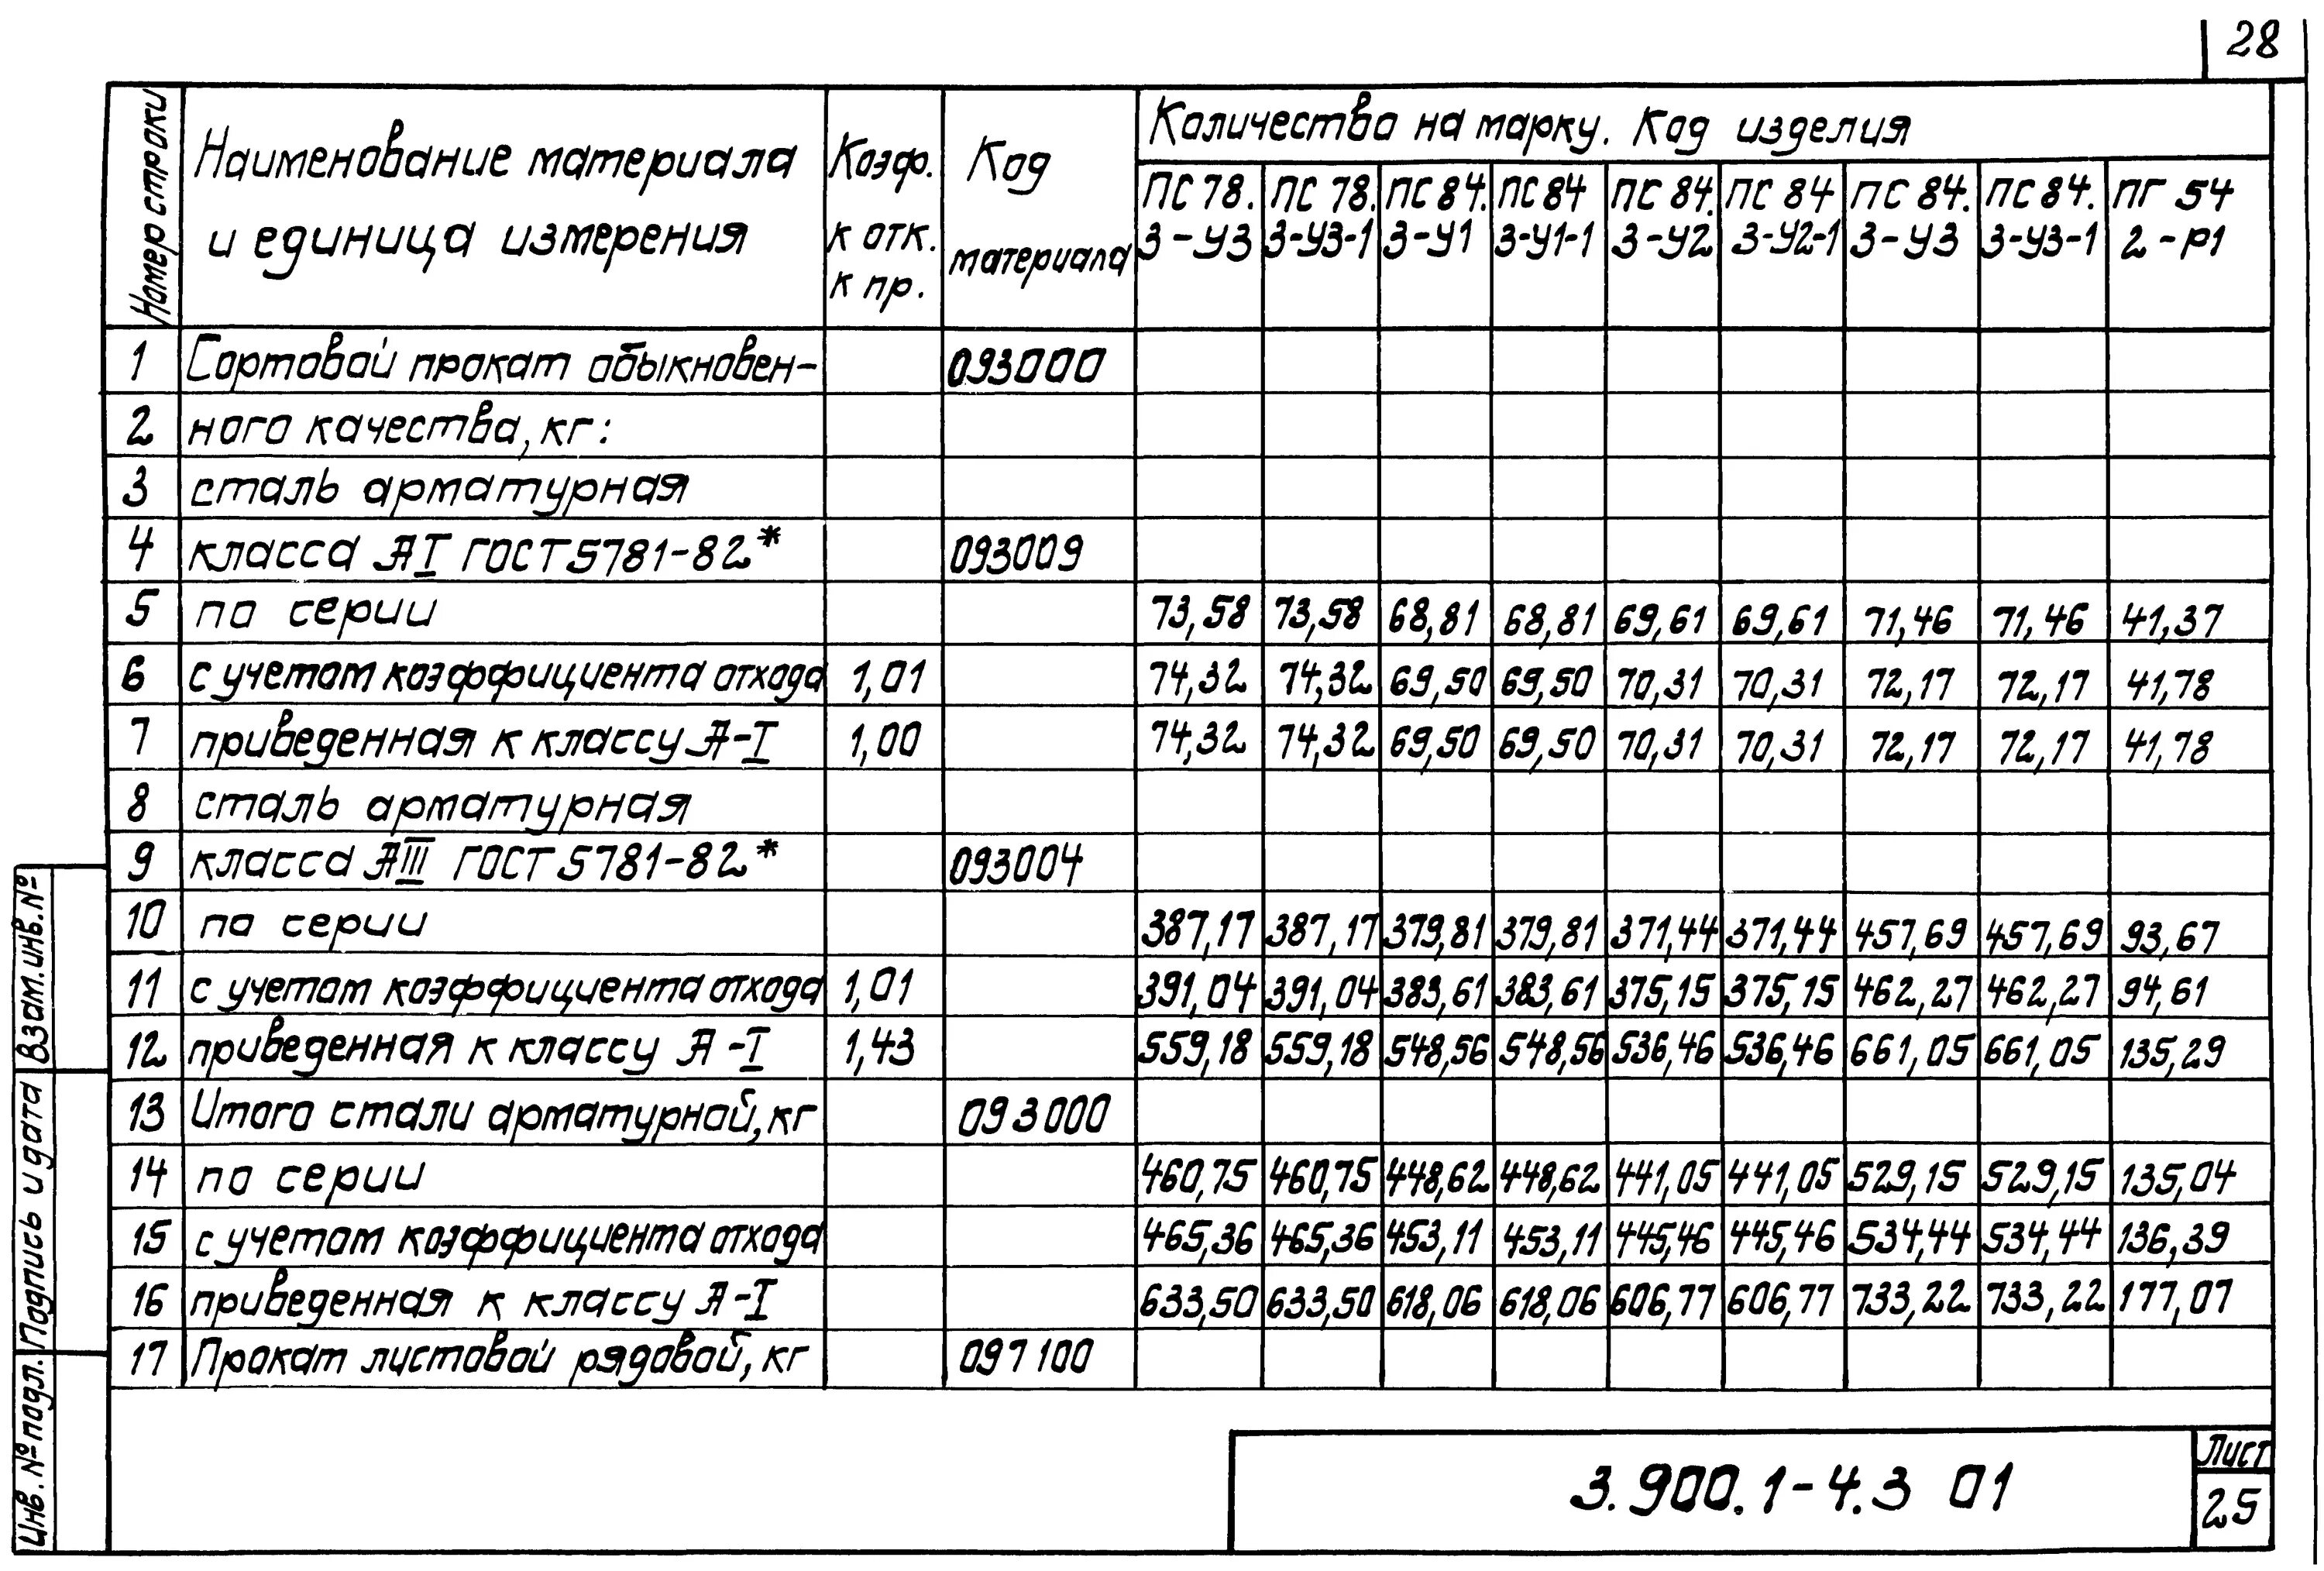 28
Номер строки
Наименование материала
и единица измерения
Коэф.
к отк.
к пр.
Код
материала
Количество на марку. Код изделия
ПС 78.
3-У3
ПС 78.
3-У3-1
ПС 84.
3-У1
ПС 84
3-У1-1
ПС 84.
3-У2
ПС 84
3-У2-1
ПС 84.
3-У3
ПС 84.
3-У3-1
ПГ 54
2-Р1
1 Сортовой прокат обыкновен- 093000
2 ного качества, кг:
3 сталь арматурная
4 класса АI ГОСТ 5781-82* 093009
5 по серии 73,58 73,58 68,81 68,81 69,61 69,61 71,46 71,46 41,37
6 с учетом коэффициента отхода 1,01 74,32 74,32 69,50 69,50 70,31 70,31 72,17 72,17 41,78
7 приведенная к классу А-I 1,00 74,32 74,32 69,50 69,50 70,31 70,31 72,17 72,17 41,78
8 сталь арматурная
9 класса АIII ГОСТ 5781-82* 093004
10 по серии 387,17 387,17 379,81 379,81 371,44 371,44 457,69 457,69 93,67
11 с учетом коэффициента отхода 1,01 391,04 391,04 383,61 383,61 375,15 375,15 462,27 462,27 94,61
12 приведенная к классу А-I 1,43 559,18 559,18 548,56 548,56 536,46 536,46 661,05 661,05 135,29
13 Итого стали арматурной, кг 093000
14 по серии 460,75 460,75 448,62 448,62 441,05 441,05 529,15 529,15 135,04
15 с учетом коэффициента отхода 465,36 465,36 453,11 453,11 445,46 445,46 534,44 534,44 136,39
16 приведенная к классу А-I 633,50 633,50 618,06 618,06 606,77 606,77 733,22 733,22 177,07
17 Прокат листовой рядовой, кг 097100
Взам. инв. №
Подпись и дата
Инв. № подл.
3.900.1-4.3 01
Лист
25